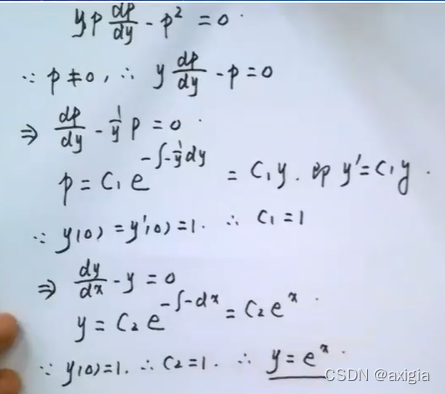 yp dp/dy - p² = 0.
∵ p ≠ 0, ∴ y dp/dy - p = 0
⇒ dp/dy - 1/y p = 0.
p = C₁ e^(-∫-1/y dy) = C₁y. 即 y' = C₁y.
∵ y(0) = y'(0) = 1. ∴ C₁ = 1
⇒ dy/dx - y = 0
y = C₂ e^(-∫-dx) = C₂eˣ.
∵ y(0) = 1. ∴ C₂ = 1. ∴ y = eˣ.
CSDN @axigia